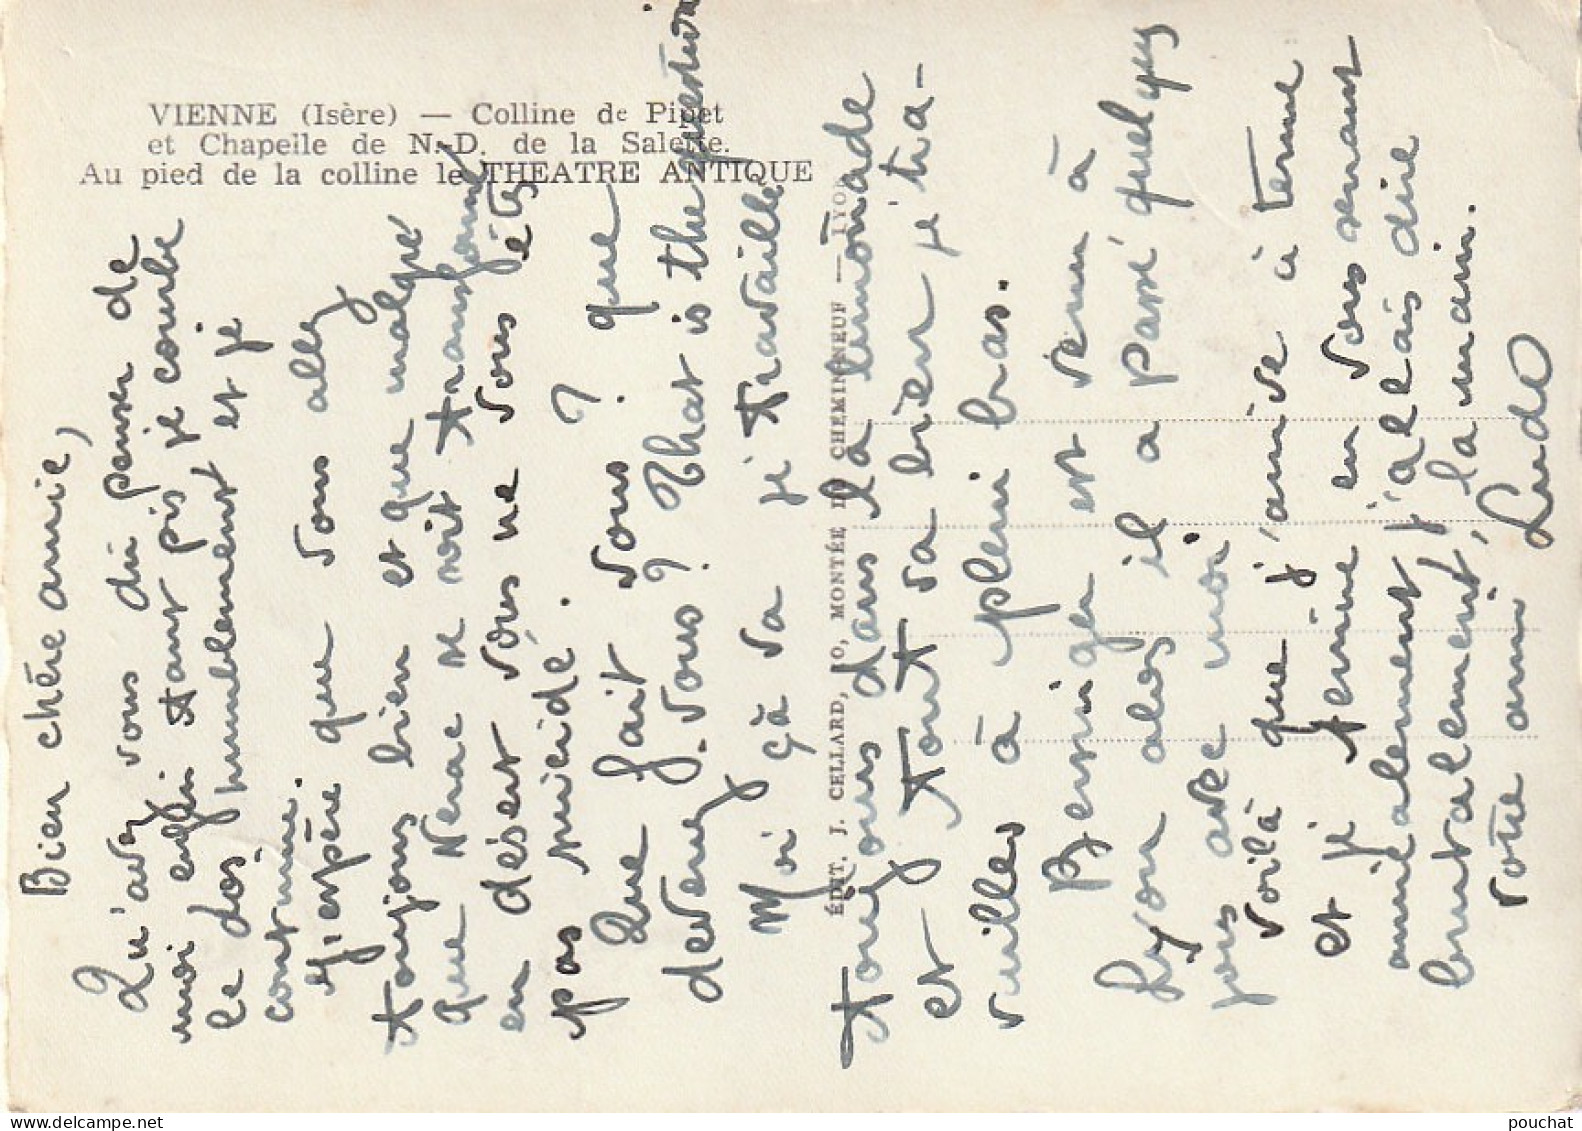 VIENNE (Isère) — Colline de Pipet
et Chapelle de N.-D. de la Salette.
Au pied de la colline le THEATRE ANTIQUE
ÉDIT. J. CELLARD, MONTÉE DE CHEMINNEUF — LYON
Bien chère amie,
Qu'avez vous dû penser de
moi enfin tant pis je courbe
le dos humblement et je
continue.
J'espère que vous allez
toujours bien et que malgré
que Nérac se soit transformé
en désert vous ne vous êtes
pas suicidé.
Que fait vous ? que
devenez-vous ? That is the question
Moi çà va je travaille
toujours dans la limonade
et tout va bien je tra-
vailles à plein bras.
est venu à
Lyon alors il a passé quelques
jours avec moi
voilà que j'arrive à terme
et je termine en vous serrant
amicalement j'allais dire
brutalement, la main.
votre ami Ludo
pouchat